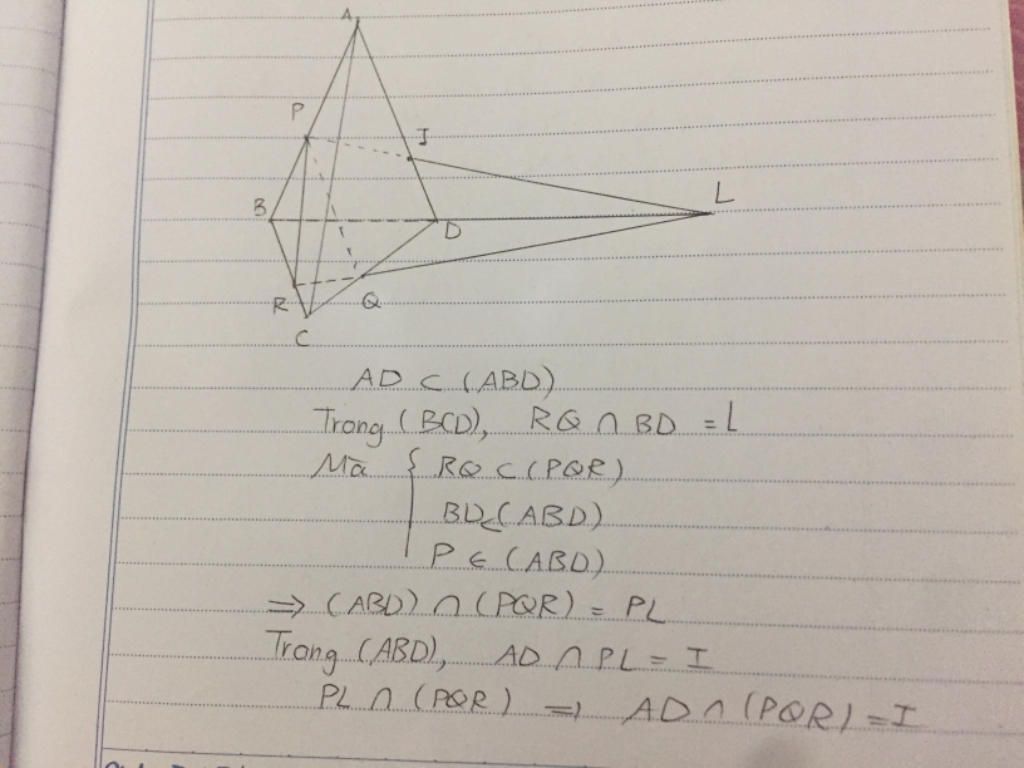 A
P
I
B
D
L
R
Q
C
AD ⊂ (ABD)
Trong (BCD), RQ ∩ BD = L
Mà { RQ ⊂ (PQR)
BD ⊂ (ABD)
P ∈ (ABD)
⇒ (ABD) ∩ (PQR) = PL
Trong (ABD), AD ∩ PL = I
PL ∩ (PQR) ⇒ AD ∩ (PQR) = I